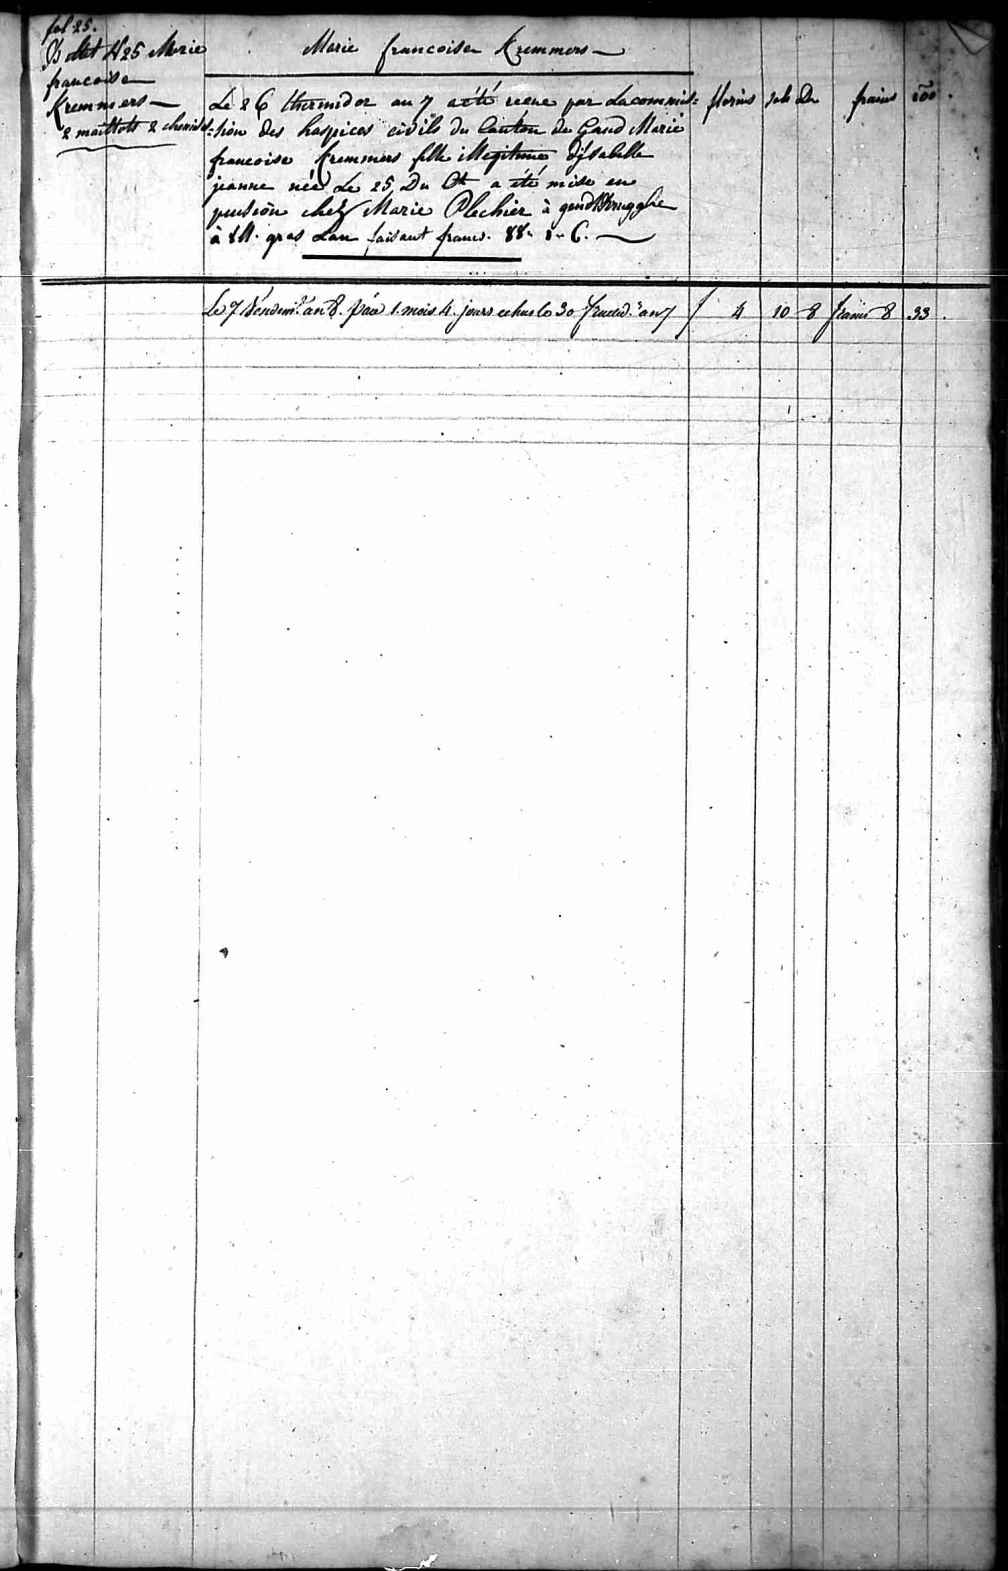 fol 25.
Marie francoise Kremmers
N 25 Marie
francoise
Kremmers
2 maillots 2 chemises
Le 26 thermidor an 7 a été recue par Lacommis=
=sion des hospices civils du Canton de Gand Marie
francoise Kremmers fille illegitime d'Isabelle
jeanne née Le 25 Du Ct a été mise en
pension chez Marie Plechier à gendbrugghe
à 8 ll. gros Lan faisant francs. 88 - 8 - 6.
florins sols De frans
Le 7 Vendemre an 8. paié 1. mois 4. jours echus le 30 fructid.r an 7 f 4 10 8 frans 8 33.